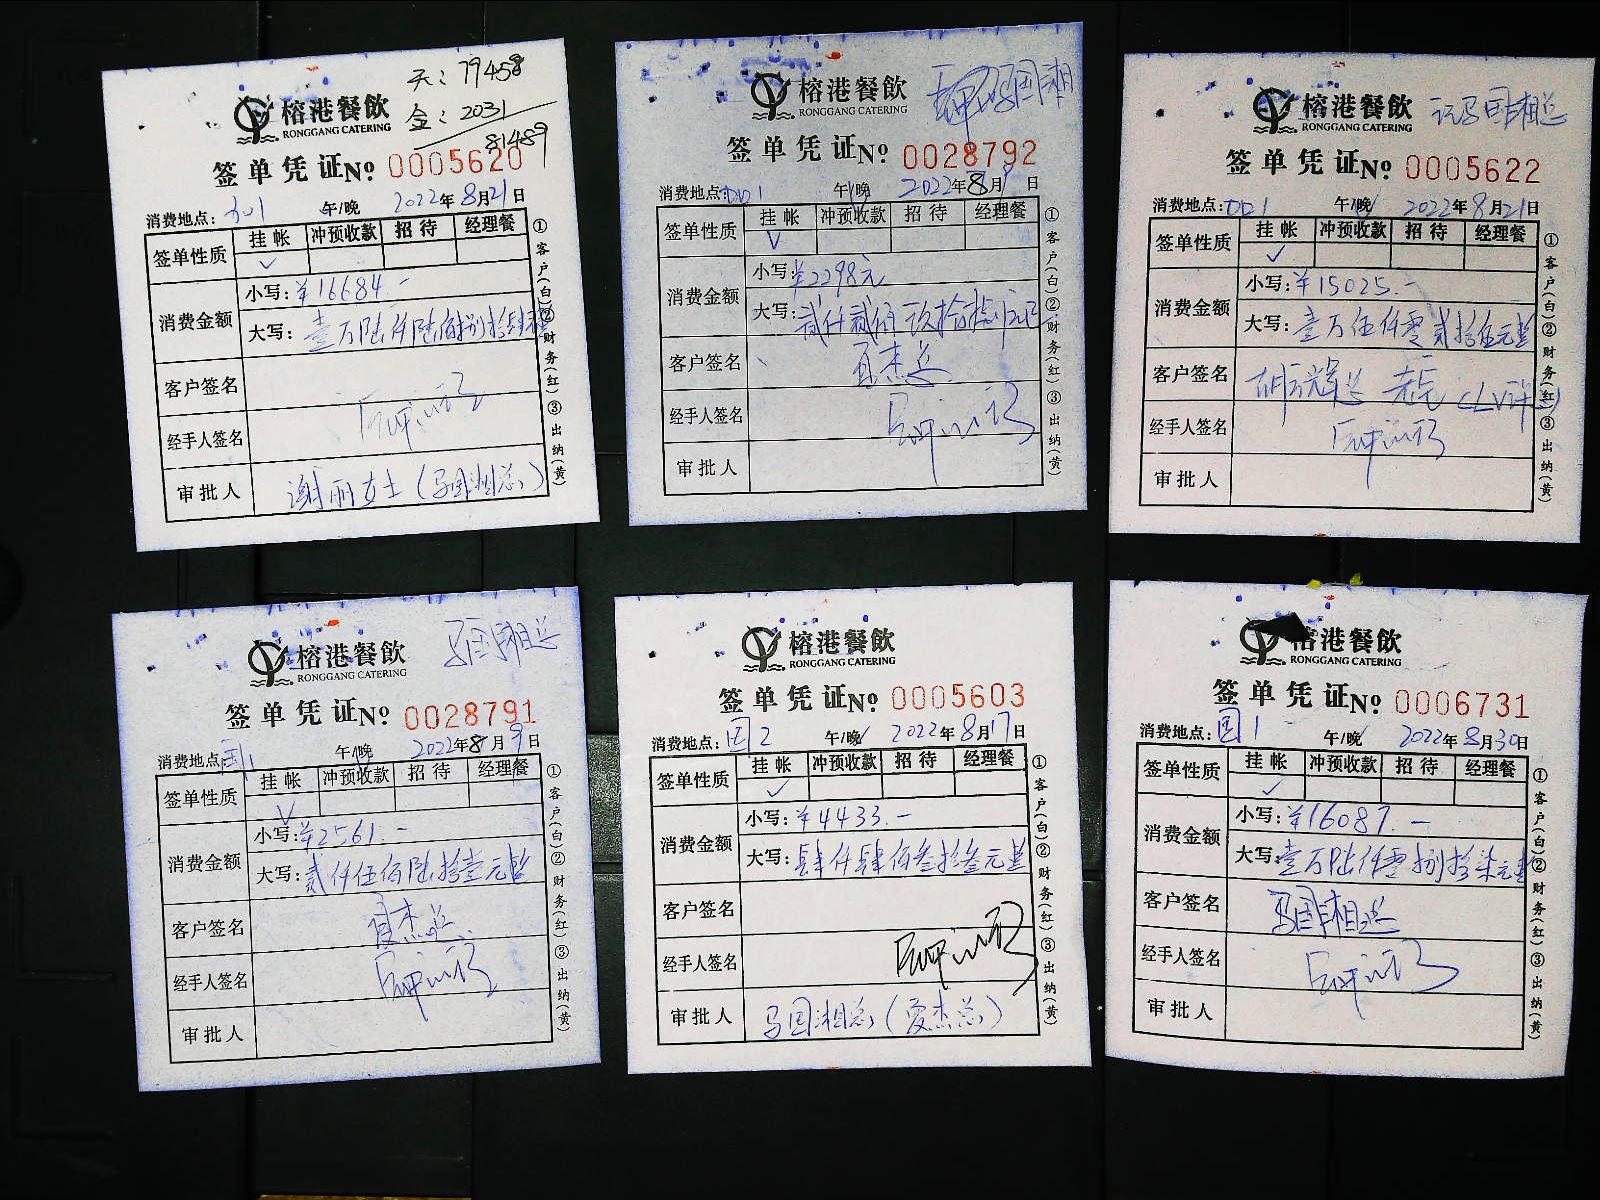 天：79458
金：2031
81489
榕港餐飲
RONGGANG CATERING
签单凭证No 0005620
消费地点： 午/晚 2022年8月21日
签单性质 挂帐 冲预收款 招待 经理餐
✓
消费金额
小写：¥16684-
大写：壹万陆仟陆佰捌拾肆元整
客户签名
经手人签名
审批人 谢丽女士（马国湘总）
①客户(白)②财务(红)③出纳(黄)
榕港餐飲 马国湘
RONGGANG CATERING
签单凭证No 0028792
消费地点：DD1 午/晚 2022年8月9日
签单性质 挂帐 冲预收款 招待 经理餐
✓
消费金额
小写：¥2298元
大写：贰仟贰佰玖拾捌元正
客户签名 夏杰总
经手人签名
审批人
①客户(白)②财务(红)③出纳(黄)
榕港餐飲 记马国湘总
RONGGANG CATERING
签单凭证No 0005622
消费地点：DD1 午/晚 2022年8月21日
签单性质 挂帐 冲预收款 招待 经理餐
✓
消费金额
小写：¥15025.-
大写：壹万伍仟零贰拾伍元整
客户签名
经手人签名
审批人
①客户(白)②财务(红)③出纳(黄)
榕港餐飲 马国湘总
RONGGANG CATERING
签单凭证No 0028791
消费地点：国1 午/晚 2022年8月9日
签单性质 挂帐 冲预收款 招待 经理餐
✓
消费金额
小写：¥2561.-
大写：贰仟伍佰陆拾壹元整
客户签名 夏杰总
经手人签名
审批人
①客户(白)②财务(红)③出纳(黄)
榕港餐飲
RONGGANG CATERING
签单凭证No 0005603
消费地点：国2 午/晚 2022年8月17日
签单性质 挂帐 冲预收款 招待 经理餐
✓
消费金额
小写：¥4433.-
大写：肆仟肆佰叁拾叁元整
客户签名
经手人签名
审批人 马国湘总（夏杰总）
①客户(白)②财务(红)③出纳(黄)
榕港餐飲
RONGGANG CATERING
签单凭证No 0006731
消费地点：国1 午/晚 2022年8月30日
签单性质 挂帐 冲预收款 招待 经理餐
✓
消费金额
小写：¥16087.-
大写：壹万陆仟零捌拾柒元整
客户签名 马国湘总
经手人签名
审批人
①客户(白)②财务(红)③出纳(黄)